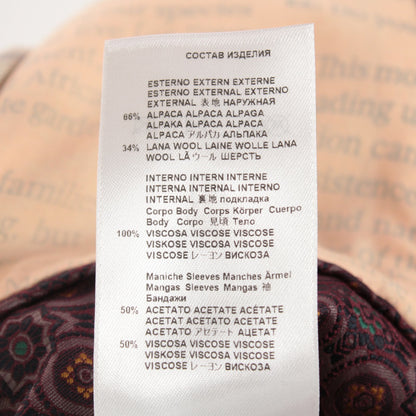 СОСТАВ ИЗДЕЛИЯ
ESTERNO EXTERN EXTERNE
ESTERNO EXTERNAL EXTERNO
EXTERNAL 表地 НАРУЖНАЯ
66% ALPACA ALPACA ALPAGA
ALPAKA ALPACA ALPACA
ALPACA アルパカ АЛЬПАКА
34% LANA WOOL LAINE WOLLE LANA
WOOL LÃ ウール ШЕРСТЬ
INTERNO INTERN INTERNE
INTERNO INTERNAL INTERNO
INTERNAL 裏地 подкладка
Corpo Body Corps Körper Cuerpo
Body Corpo 見頃 Тело
100% VISCOSA VISCOSE VISCOSE
VISKOSE VISCOSA VISCOSE
VISCOSE レーヨン ВИСКОЗА
Maniche Sleeves Manches Ärmel
Mangas Sleeves Mangas 袖
Бандажи
50% ACETATO ACETATE ACÉTATE
ACETAT ACETATO ACETATE
ACETATO アセテート АЦЕТАТ
50% VISCOSA VISCOSE VISCOSE
VISKOSE VISCOSA VISCOSE
VISCOSE レーヨン ВИСКОЗА